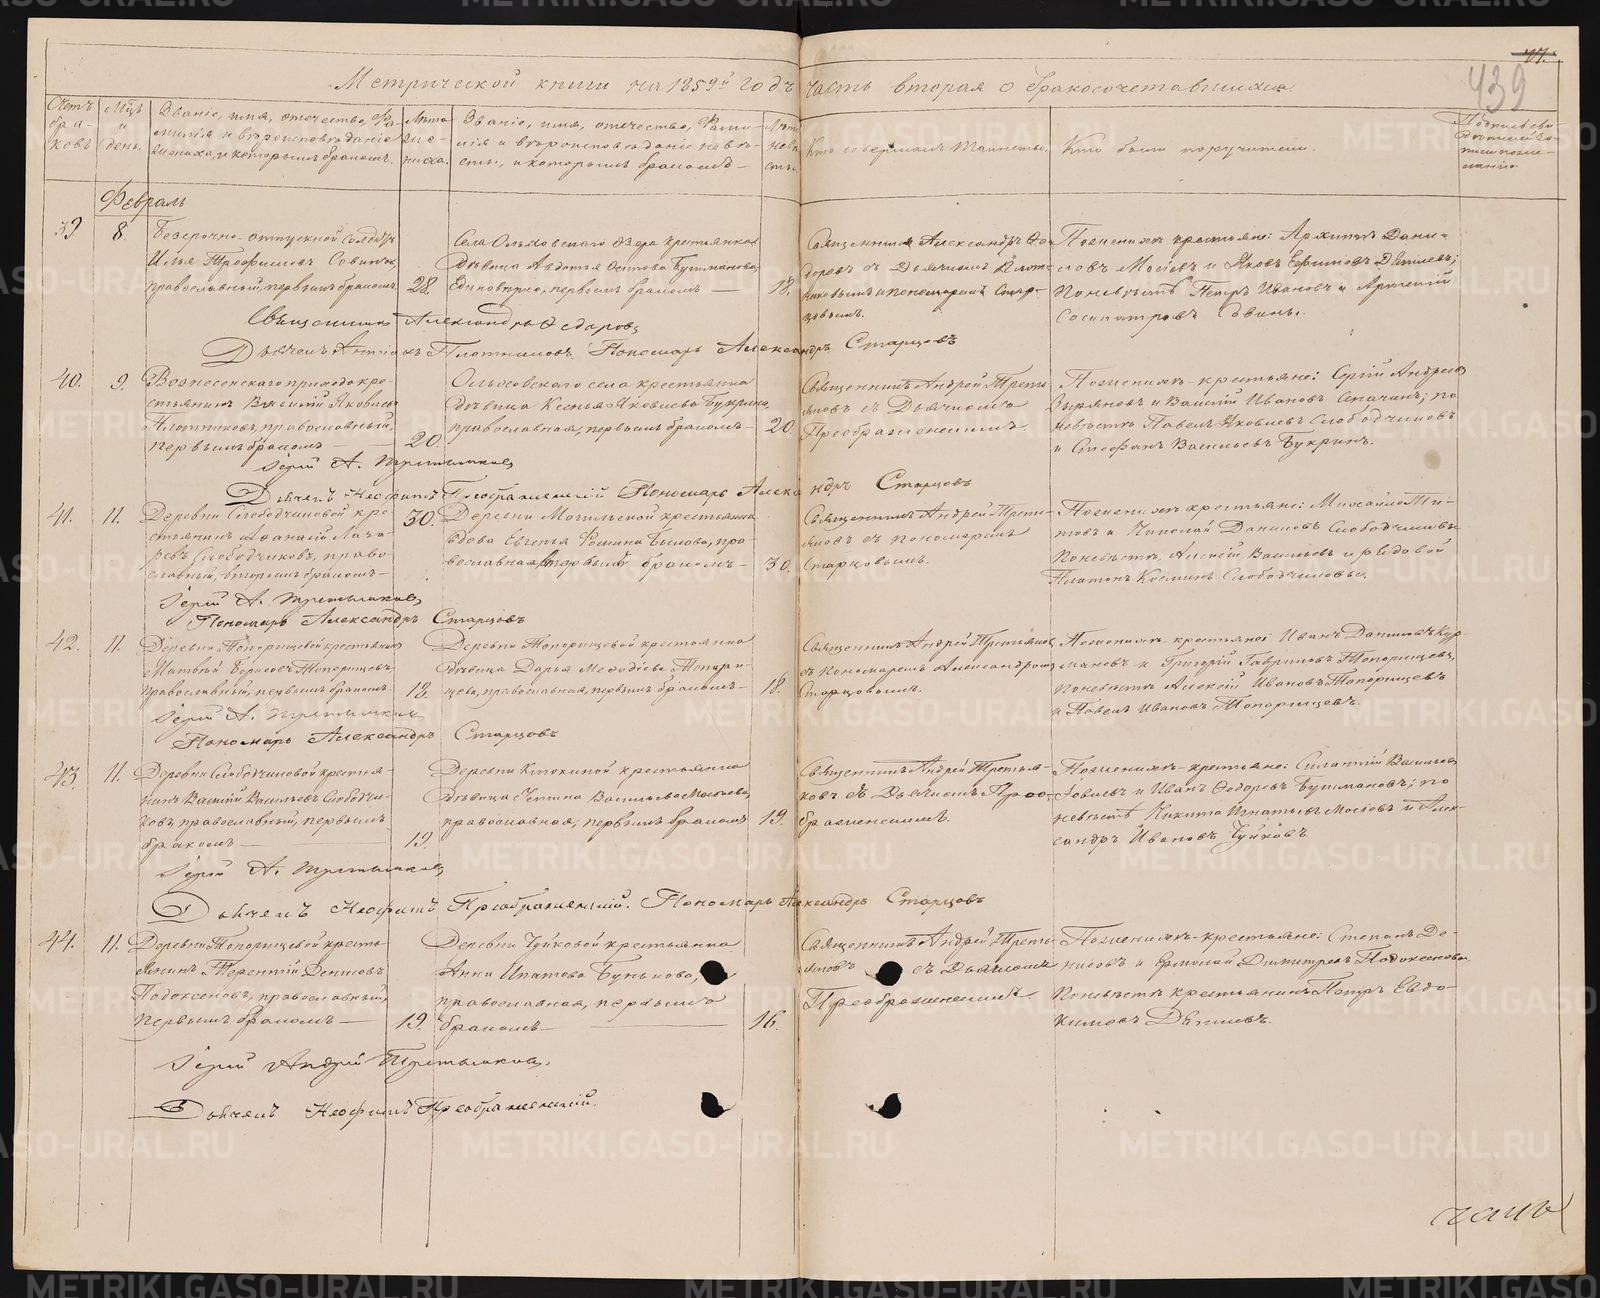 Метрической книги на 1859й годъ часть вторая о бракосочетавшихся.
439
Счетъ браковъ
Мѣсяцъ и день.
Званіе, имя, отечество, фамилія и вѣроисповѣданіе жениха, и которымъ бракомъ.
Лѣта жениха.
Званіе, имя, отечество, фамилія и вѣроисповѣданіе невѣсты, и которымъ бракомъ
Лѣта невѣсты.
Кто совершалъ таинство.
Кто были поручители.
Февраль
39.
8.
Безсрочно-отпускной солдатъ
Илья Трофимовъ Совинъ,
православный, первымъ бракомъ.
28.
Села Ольховскаго озера крестьянка
дѣвица Авдотья Осипова Бушманова,
единовѣрка, первымъ бракомъ —
18.
Священникъ Александръ Ѳе-
доровъ съ Дьячкомъ Плот-
никовымъ и пономаремъ Стар-
цовымъ.
По женихѣ крестьяне: Архипъ Дани-
ловъ Мосіевъ и Яковъ Ефимовъ Дѣтневъ;
по невѣстѣ Петръ Ивановъ и Артемій
Сосипатровъ Совины.
Священникъ Александръ Ѳедоровъ
Дьячекъ Плотниковъ. Пономарь Александръ Старцовъ
40.
9.
Вознесенскаго прихода кре-
стьянинъ Василій Яковлевъ
Плотниковъ, православный,
первымъ бракомъ —
20.
Ольховскаго села крестьянка
дѣвица Ксенья Яковлева Букрина,
православная, первымъ бракомъ —
20.
Священникъ Андрей Треть-
яковъ съ Дьячкомъ
Преображенскимъ.
По женихѣ - крестьяне: Сергій Андреевъ
Зыряновъ и Василій Ивановъ Сепачинъ; по
невѣстѣ Павелъ Яковлевъ Слободчиковъ
и Стефанъ Васильевъ Букринъ.
Іерей А. Третьяковъ
Дьячекъ Неофитъ Преображенскій Пономарь Александръ Старцовъ
41.
11.
Деревни Слободчиковой кре-
стьянинъ Аѳанасій Лаза-
ревъ Слободчиковъ, право-
славный, вторымъ бракомъ —
30.
Деревни Могильской крестьянка
вдова Евгенья Фомина Быкова, пра-
вославная, вторымъ бракомъ —
30.
Священникъ Андрей Треть-
яковъ съ пономаремъ
Старцовымъ.
По женихѣ крестьяне: Михаилъ Ти-
товъ и Николай Даниловъ Слободчиковы
по невѣстѣ, Алексѣй Васильевъ и рядовой
Платонъ Козминъ Слободчиковы.
Іерей А. Третьяковъ
Пономарь Александръ Старцовъ
42.
11.
Деревни Топорищевой крестьянинъ
Матвѣй Борисовъ Топорищевъ
православный, первымъ бракомъ
18.
Деревни Топорищевой крестьянка
дѣвица Дарья Меѳодіева Топори-
щева, православная, первымъ бракомъ —
18.
Священникъ Андрей Третьяковъ
съ пономаремъ Александромъ
Старцовымъ.
По женихѣ крестьяне: Иванъ Даниловъ Кур-
мановъ и Григорій Гавриловъ Топорищевъ,
по невѣстѣ Алексѣй Ивановъ Топорищевъ
и Павелъ Ивановъ Топорищевъ.
Іерей А. Третьяковъ
Пономарь Александръ Старцовъ
43.
11.
Деревни Слободчиковой крестья-
нинъ Василій Васильевъ Слободчи-
ковъ православный, первымъ
бракомъ —
19.
Деревни Клюкиной крестьянка
дѣвица Васильева Мосіева,
православная, первымъ бракомъ
19.
Священникъ Андрей Третья-
ковъ съ Дьячкомъ Прео-
браженскимъ.
По женихѣ - крестьяне: Силантій Васильевъ
и Иванъ Ѳедоровъ Бушмановъ; по
невѣстѣ Никита Игнатьевъ Мосіевъ и Алек-
сандръ Ивановъ Чуйковъ.
Іерей А. Третьяковъ
Дьячекъ Неофитъ Преображенскій. Пономарь Александръ Старцовъ
44.
11.
Деревни Топорищевой кресть-
янинъ Терентій Денисовъ
Подоксеновъ, православный,
первымъ бракомъ —
19.
Деревни Чуйковой крестьянка
Анна Ипатова Бунькова,
православная, первымъ
бракомъ —
16.
Священникъ Андрей Треть-
яковъ съ Дьячкомъ
Преображенскимъ.
По женихѣ - крестьяне: Степанъ Де-
нисовъ и Ермолай Димитріевъ Подоксеновы.
по невѣстѣ крестьянинъ Петръ Евдо-
кимовъ Дѣтневъ.
Іерей Андрей Третьяковъ.
Дьячекъ Неофитъ Преображенскій.
METRIKI.GASO-URAL.RU